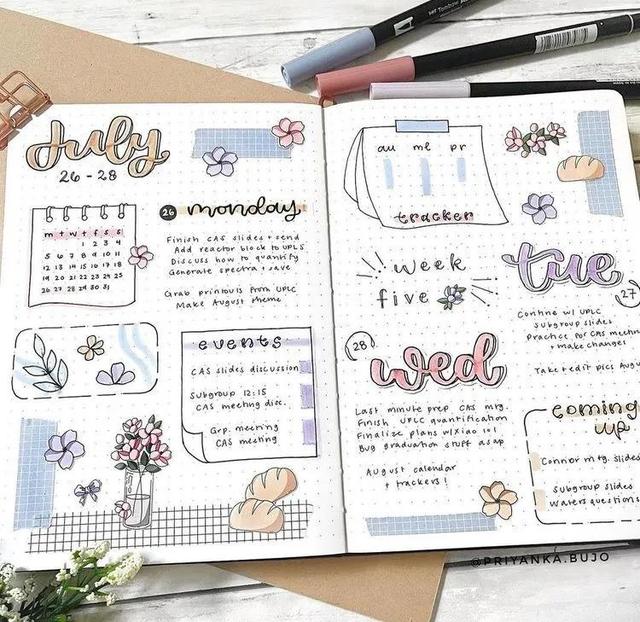 July
26 - 28
m t w t f s s
1 2 3 4
5 6 7 8 9 10 11
12 13 14 15 16 17 18
19 20 21 22 23 24 25
26 27 28 29 30 31
26 monday
Finish CAS slides + send
Add reactor block to UPLS
Discuss how to quantify
Generate spectra + save
Grab printouts from UPLC
Make August theme
events
CAS slides discussion
Subgroup 12:15
CAS meeting disc.
Grp. meeting
CAS meeting
au me pr
tracker
week
five
tue
27
Continue w/ UPLC
Subgroup slides
Practice for CAS meetin
+ make changes
Take + edit pics Augu
28
wed
Last minute prep CAS mtg.
Finish UPLC quantification
Finalize plans w/ Xiao lol
Bug graduation stuff asap
August calendar
+ trackers!
coming
up
Connor mtg. slides
Subgroup slides
Waters questions
@PRIYANKA.BUJO
Tombow